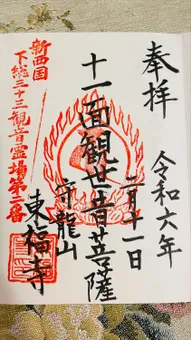 奉拝
令和六年
二月十一日
十一面観世音菩薩
守龍山
東福寺
新西国
下総三十三観音霊場第二番